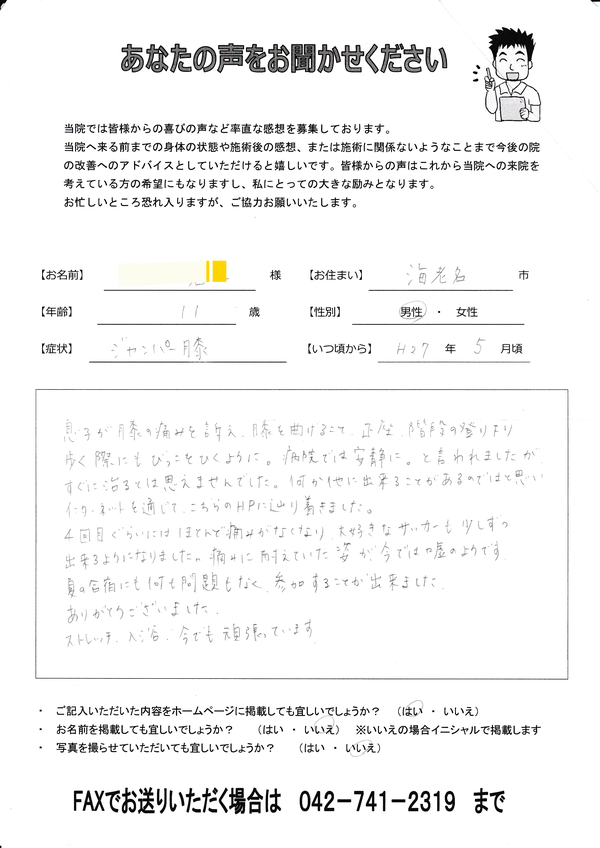 あなたの声をお聞かせください
当院では皆様からの喜びの声など率直な感想を募集しております。
当院へ来る前までの身体の状態や施術後の感想、または施術に関係ないようなことまで今後の院
の改善へのアドバイスとしていただけると嬉しいです。皆様からの声はこれから当院への来院を
考えている方の希望にもなりますし、私にとっての大きな励みとなります。
お忙しいところ恐れ入りますが、ご協力お願いいたします。
【お名前】 様 【お住まい】 海老名 市
【年齢】 11 歳 【性別】 男性 ・ 女性
【症状】 ジャンパー膝 【いつ頃から】 H27 年 5 月頃
息子が膝の痛みを訴え、膝を曲げること、正座、階段の登り下り
歩く際にもびっこをひくように。病院では安静に。と言われましたが
すぐに治るとは思えませんでした。何か他に出来ることがあるのではと思い
インターネットを通じて、こちらのHPに辿り着きました。
4回目ぐらいにはほとんど痛みがなくなり、大好きなサッカーも少しずつ
出来るようになりました。痛みに耐えていた姿が今では嘘のようです。
夏の合宿にも何も問題もなく、参加することが出来ました。
ありがとうございました。
ストレッチ、入浴、今でも頑張っています。
・ ご記入いただいた内容をホームページに掲載しても宜しいでしょうか? （はい ・ いいえ）
・ お名前を掲載しても宜しいでしょうか? （はい ・ いいえ） ※いいえの場合イニシャルで掲載します
・ 写真を撮らせていただいても宜しいでしょうか? （はい ・ いいえ）
FAXでお送りいただく場合は 042-741-2319 まで